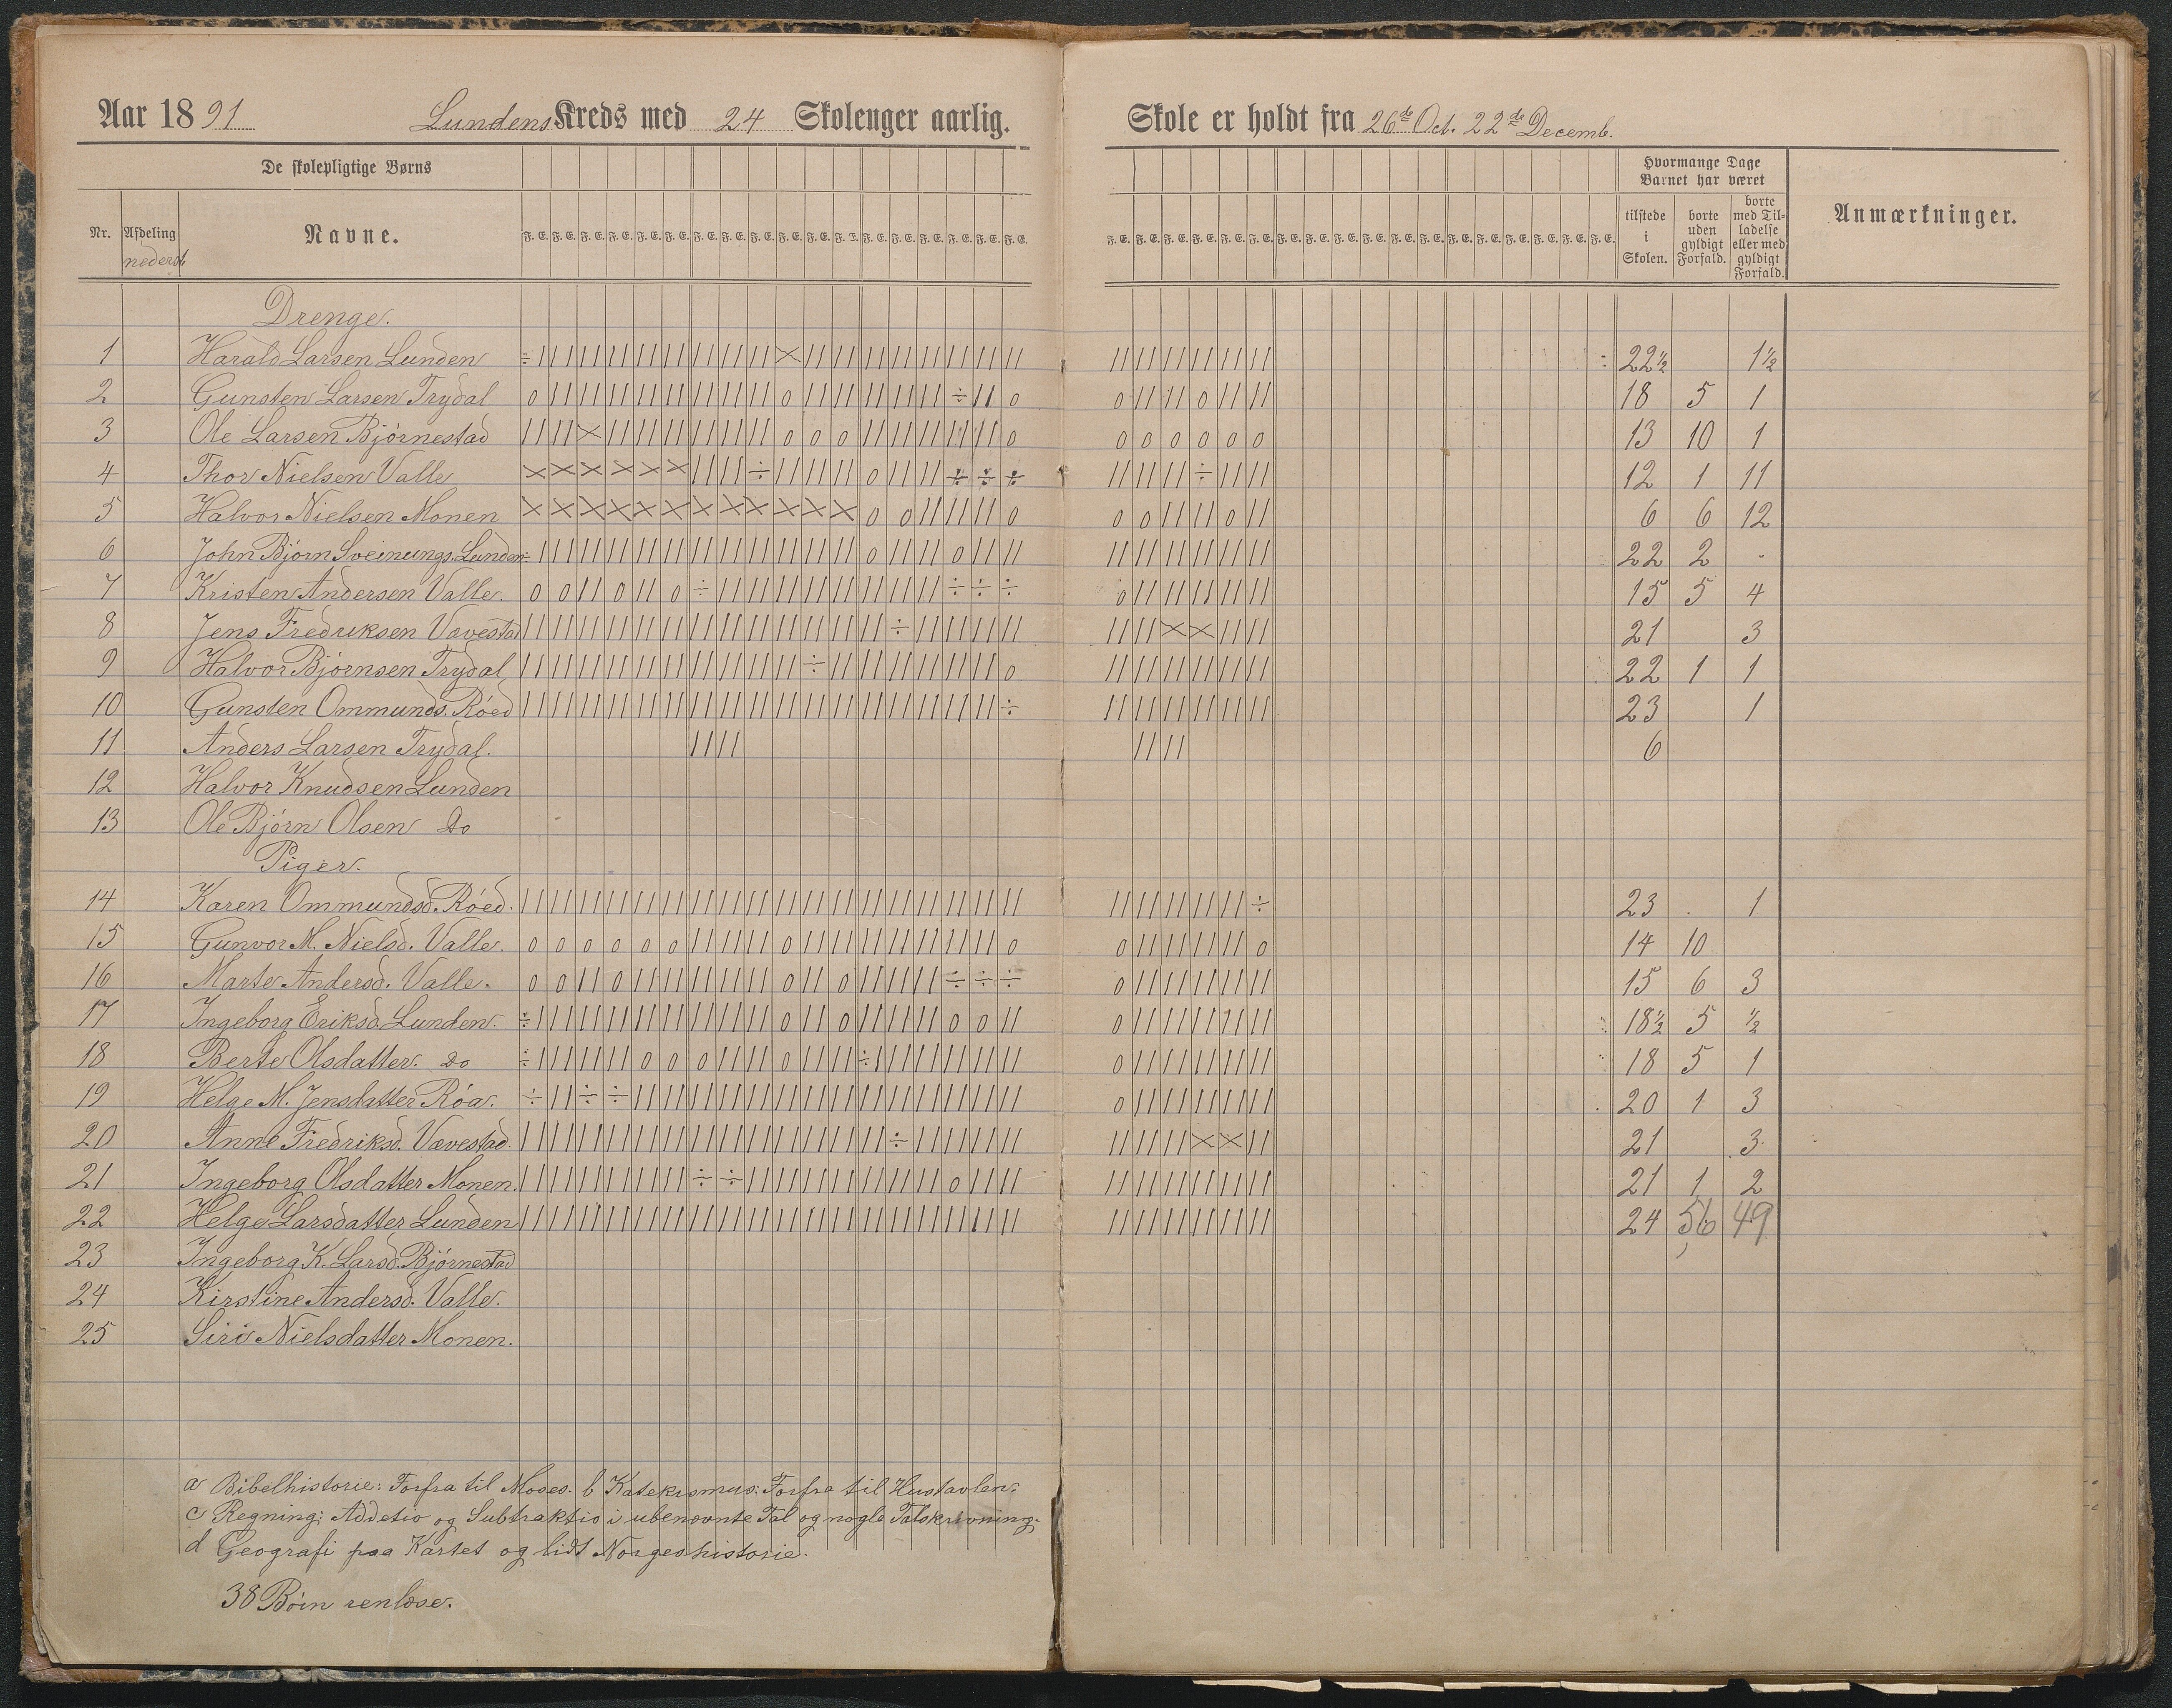 Aar 1891 Lundens Kreds med 24 Skoleuger aarlig. Skole er holdt fra 26de Oct. 22de Decemb.
De skolepligtige Børns
Hvormange Dage Barnet har været
Nr. Afdeling nederst Navne. F. E. F. E. F. E. F. E. F. E. F. E. F. E. F. E. F. E. F. E. F. E. F. E. F. E. F. E. F. E. F. E. F. E. F. E.
tilstede i Skolen. borte uden gyldigt Forfald. borte med Tilladelse eller med gyldigt Forfald. Anmærkninger.
Drenge.
1 Harald Larsen Lunden 22½ 1½
2 Gunsten Larsen Trydal 18 5 1
3 Ole Larsen Bjørnestad 13 10 1
4 Thor Nielsen Valle 12 1 11
5 Halvor Nielsen Monen 6 6 12
6 John Bjørn Sveinungs. Lunden 22 2 -
7 Kristen Andersen Valle. 15 5 4
8 Jens Fredriksen Vævestad 21 3
9 Halvor Bjørnsen Trydal 22 1 1
10 Gunsten Ommunds. Røed 23 1
11 Anders Larsen Trydal. 6
12 Halvor Knudsen Lunden
13 Ole Bjørn Olsen Do
Piger.
14 Karen Ommundsd. Røed. 23 . 1
15 Gunvor M. Nielsd. Valle. 14 10
16 Marte Andersd. Valle. 15 6 3
17 Ingeborg Eriksd. Lunden. 18½ 5 ½
18 Berte Olsdatter. Do 18 5 1
19 Helge M. Jensdatter Røa. 20 1 3
20 Anne Fredriksd. Vævestad. 21 3
21 Ingeborg Olsdatter Monen. 21 1 2
22 Helge Larsdatter Lunden 24 56 49
23 Ingeborg K. Larsd. Bjørnestad
24 Kirstine Andersd. Valle.
25 Siri Nielsdatter Monen.
a Bibelhistorie: Forfra til Moses. b Katekismus: Forfra til Hustavlen.
c Regning: Addetio og Subtraktio i ubenævnte Tal og nogle Talskrivning.
d Geografi paa Kartet og lidt Norgeshistorie.
38 Børn renlæse.